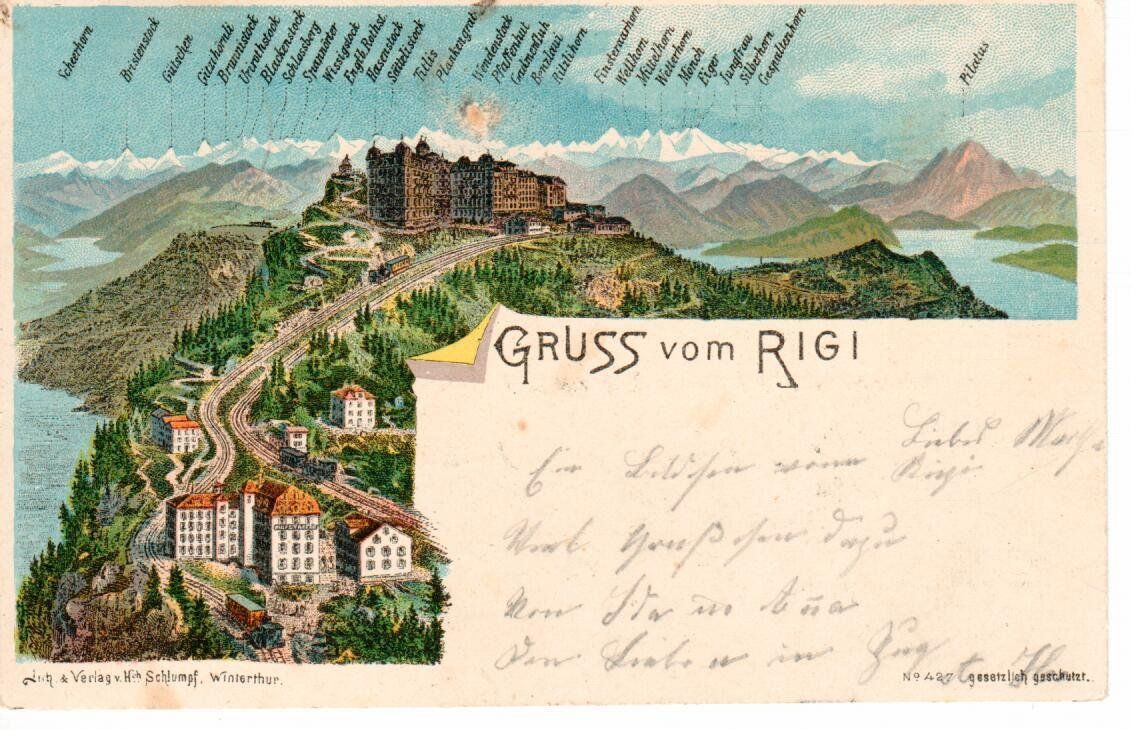 Scherhorn
Bristenstock
Gitschen
Gitschhörnli
Brunnistock
Urirothstock
Blackenstock
Schlossberg
Spannörter
Wissigstock
Engelb. Rothst.
Hasenstock
Sättelistock
Titlis
Plankengrat
Wendenstock
Pfaffenhut
Gadmenfluh
Rothihorn
Finsteraarhorn
Wellhorn
Wetterhorn
Mönch
Eiger
Jungfrau
Silberhorn
Gespaltenhorn
Pilatus
GRUSS vom RIGI
Liebes
Ein Bildchen vom Rigi
Viel Grüßchen dazu
Von Ida u
Den Lieben in Zug
Lith. & Verlag v. Hch Schlumpf, Winterthur.
No 427 gesetzlich geschützt.